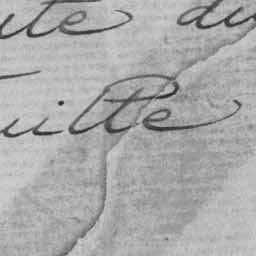 ute du
uitte